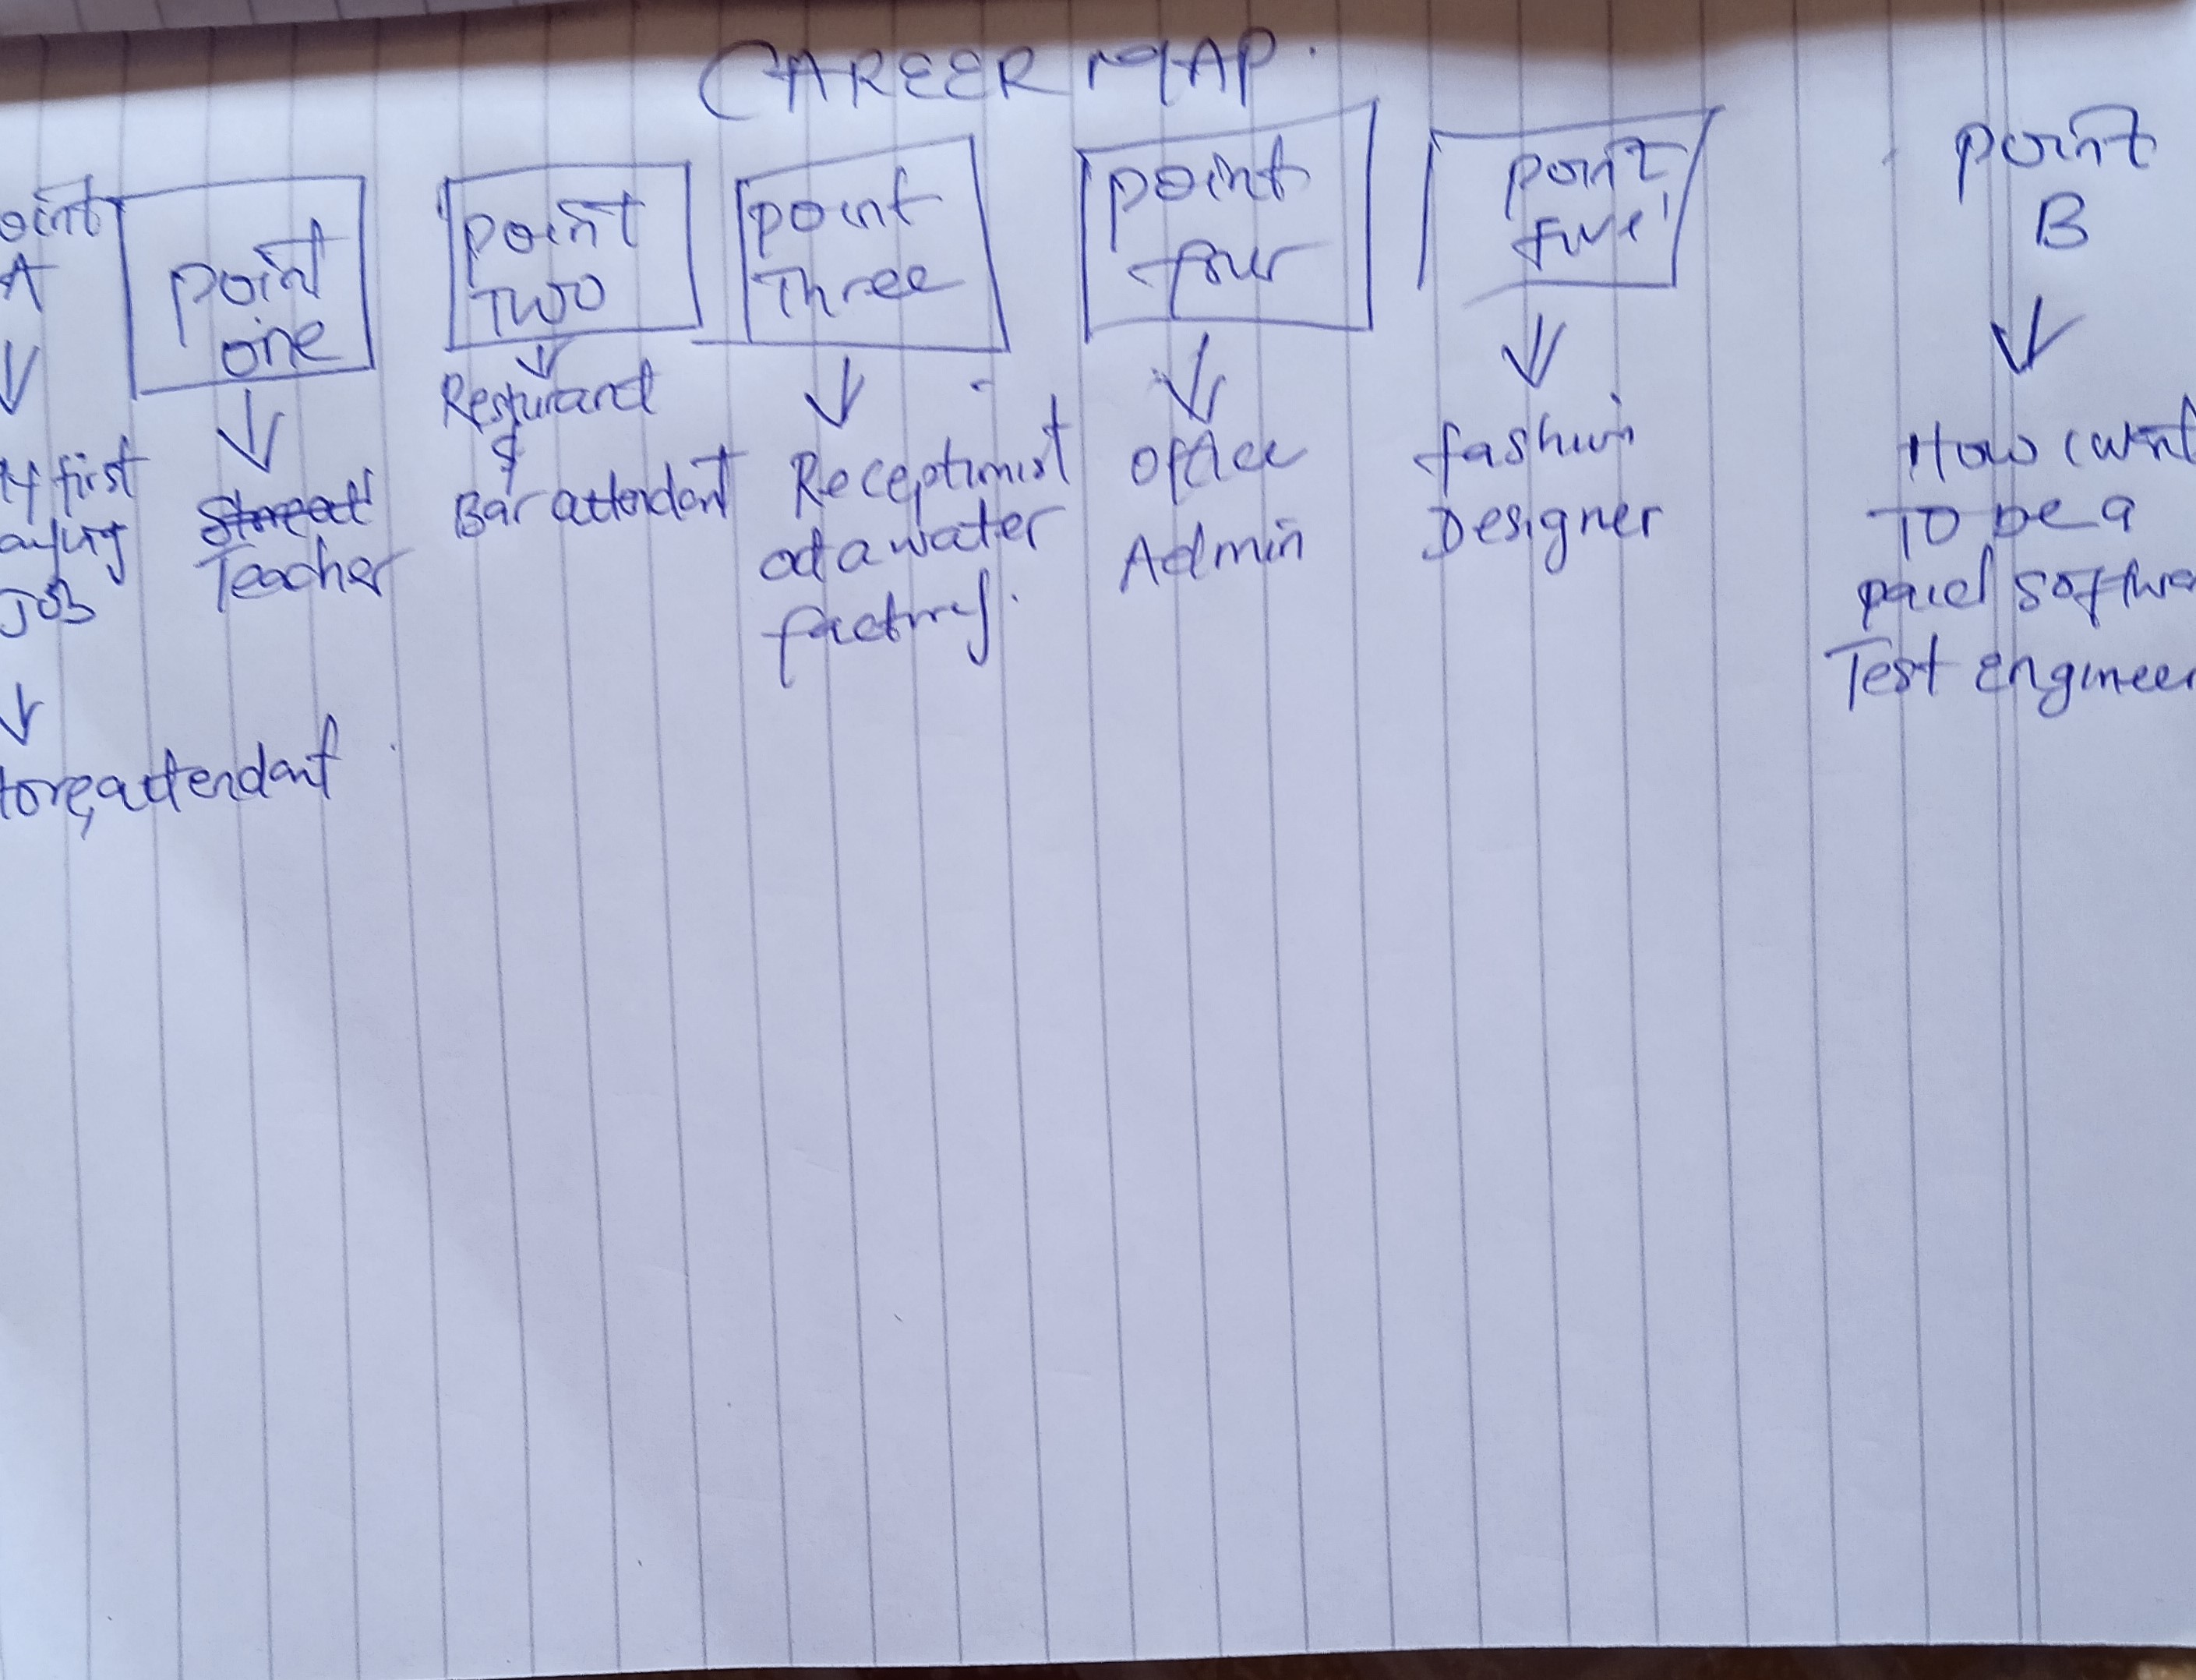 CAREER MAP.
oint
A
y first
aying
JOB
tore, attendant
point
one
Teacher
point
TWO
Resturant
&
Bar attendant
point
Three
Receptionist
at a water
factory.
point
four
office
Admin
point
five
fashion
Designer
point
B
How i want
To be a
paid softwa
Test engineer